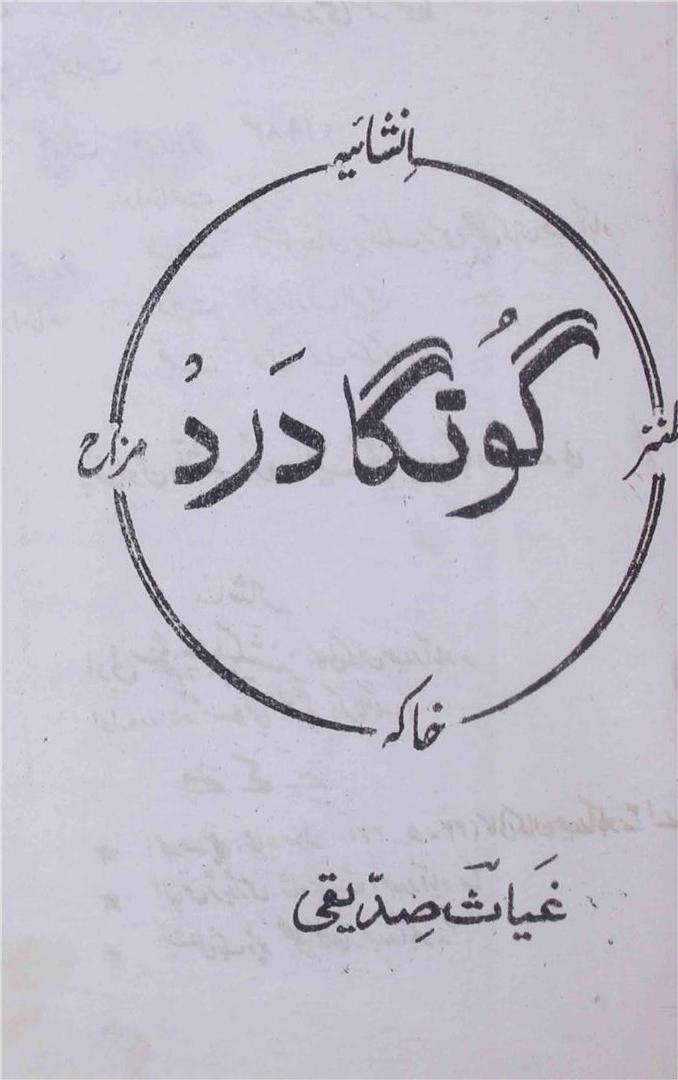 اِنشائیہ
طنز
گُونگا دَردْ
مزاح
خاکہ
غیاث صِدّیقی